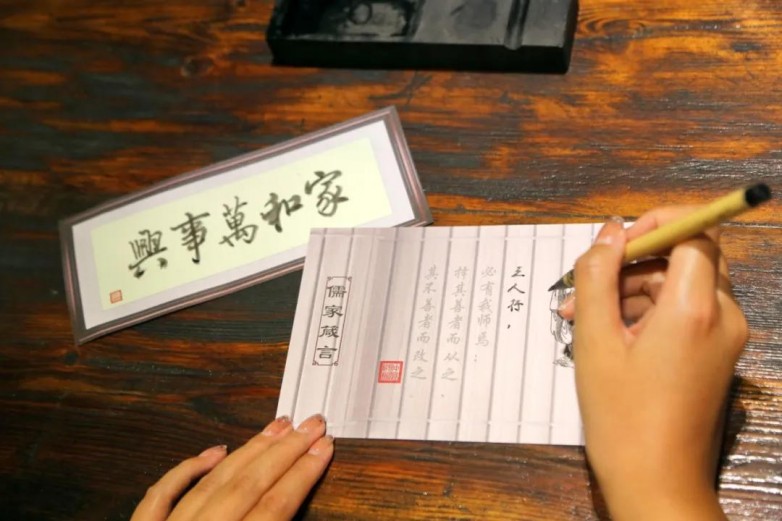 家和萬事興
三人行，
必有我师焉；
择其善者而从之，
其不善者而改之。
儒家箴言